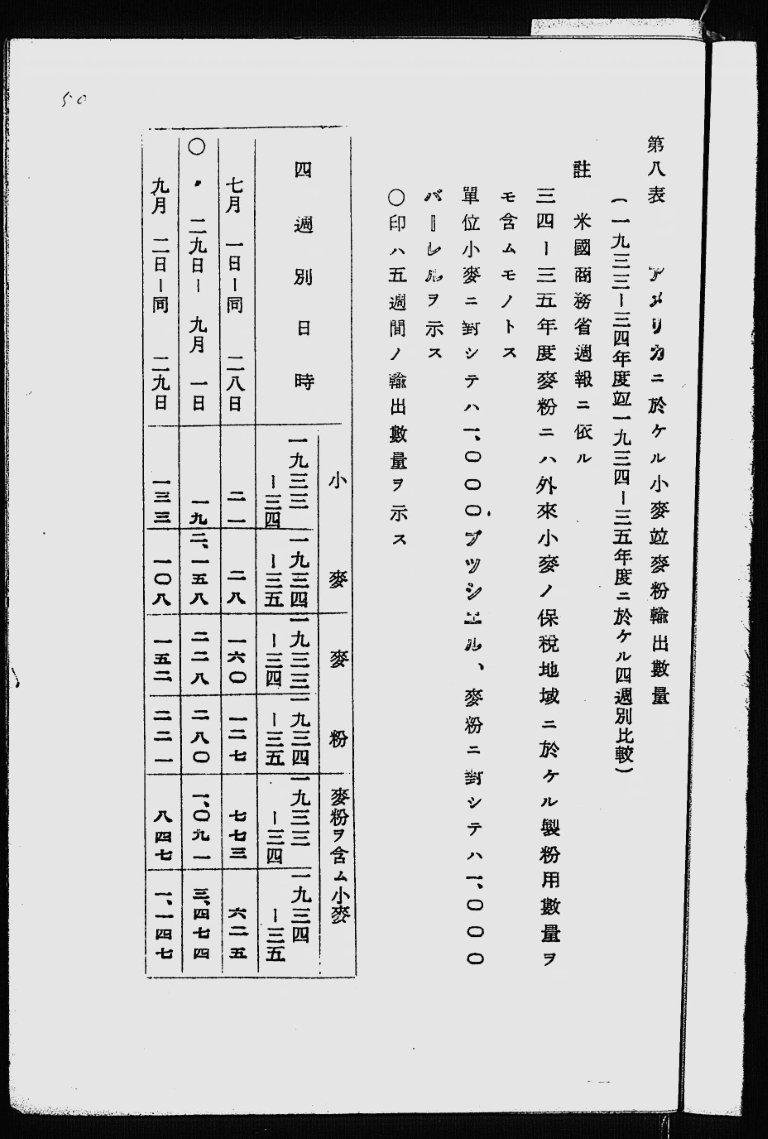 50
第八表　アメリカニ於ケル小麥竝麥粉輸出數量
(一九三三ー三四年度竝一九三四ー三五年度ニ於ケル四週別比較)
註　米國商務省週報ニ依ル
三四ー三五年度麥粉ニハ外來小麥ノ保税地域ニ於ケル製粉用數量ヲ
モ含ムモノトス
單位小麥ニ對シテハ一、〇〇〇ブツシエル、麥粉ニ對シテハ一、〇〇〇
バーレルヲ示ス
〇印ハ五週間ノ輸出數量ヲ示ス
四週別日時　小麥　麥粉　麥粉ヲ含ム小麥
一九三三ー三四　一九三四ー三五　一九三三ー三四　一九三四ー三五　一九三三ー三四　一九三四ー三五
七月　一日ー同　二八日　二一　二八　一六〇　一二七　七七三　六二五
〇〃　二九日ー　九月　一日　一九　二、一五八　二二八　二八〇　一、〇九一　三、四七四
九月　二日ー同　二九日　一三三　一〇八　一五二　二二一　八四七　一、一四七